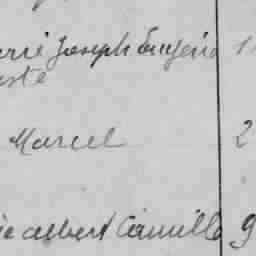 Joseph Eugène 1
Marcel 2
albert Camille 9